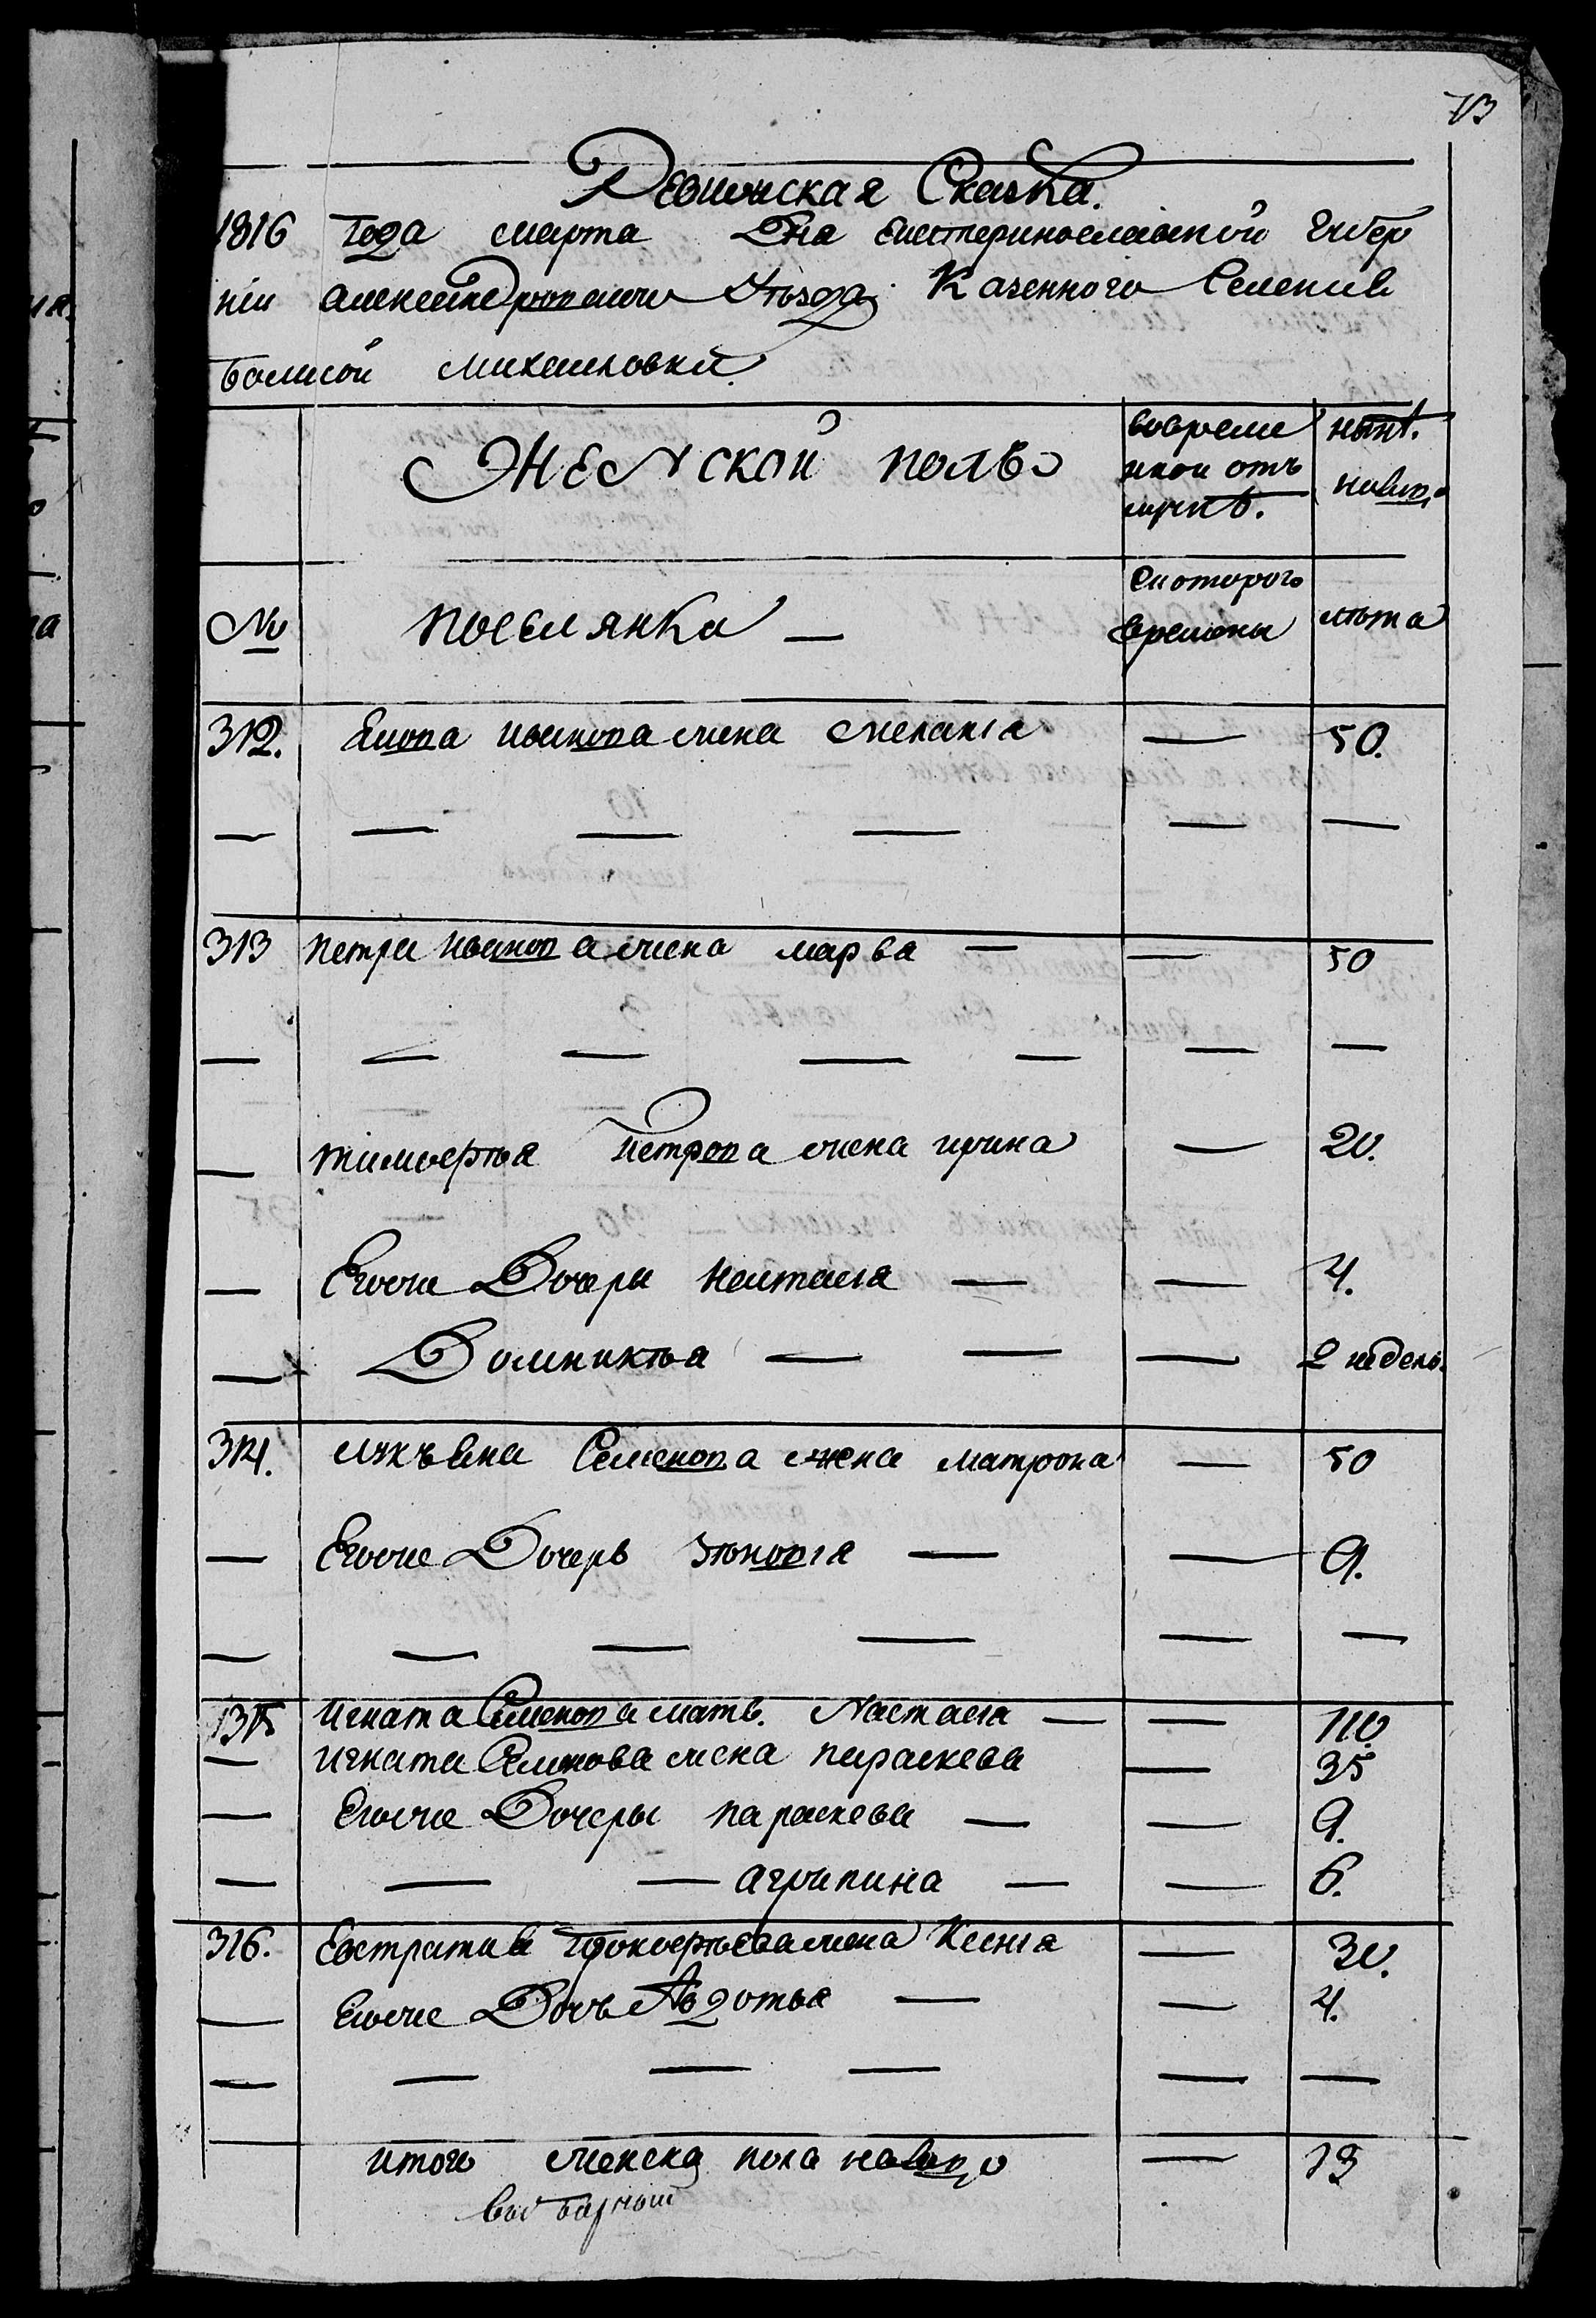 73
Ревижская Сказка.
1816 года марта Дня Екатеринославской Губер
ніи Александровскаго Уѣзда Казенного Селенія
болшой михаиловки
Женской полъ
вовреме
нной отъ
лучкѣ.
нынѣ.
налицо
№
поселянка —
скоторого
времены
лѣта
312. Якова иванова жена меланія — 50.
— — — — — —
313 петра иванова жена марва — — 50
— — — — — — —
— тимоѳея петрова жена ирина — 20.
— Егоже Дочеры наталія — — 4.
— Домникѣя — — — 2 недель.
314. лукъяна Семенова жена матрона — 50
— Егоже Дочерь зѣновія — — 9.
— — — — — —
315 игната Семенова мать. Настасія — — 110
— игната Семенова жена параскева — 35
— Егоже Дочеры параскева — — 9.
— — — агрипина — — 6.
316. Евстратия Прокоѳьева жена Ксенія — 30.
— Егоже Дочь Авдотья — — 4.
— — — — — —
итого женска пола налицо — 13
выборный